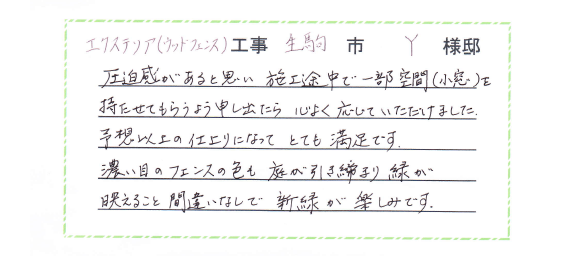 エクステリア(ウッドフェンス)工事 生駒 市 Y 様邸
圧迫感があると思い 施工途中で一部空間(小窓)を
持たせてもらうよう申し出たら 心よく応じていただけました.
予想以上の仕上りになって とても 満足です.
濃い目のフェンスの色も 庭が引き締まり 緑が
映えること 間違いなしで 新緑が 楽しみです.